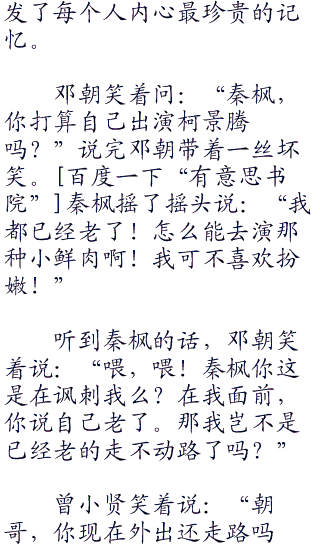 发了每个人内心最珍贵的记
忆。
邓朝笑着问：“秦枫，
你打算自己出演柯景腾
吗？”说完邓朝带着一丝坏
笑。[百度一下“有意思书
院”]秦枫摇了摇头说：“我
都已经老了！怎么能去演那
种小鲜肉啊！我可不喜欢扮
嫩！”
听到秦枫的话，邓朝笑
着说：“喂，喂！秦枫你这
是在讽刺我么？在我面前，
你说自己老了。那我岂不是
已经老的走不动路了吗？”
曾小贤笑着说：“朝
哥，你现在外出还走路吗